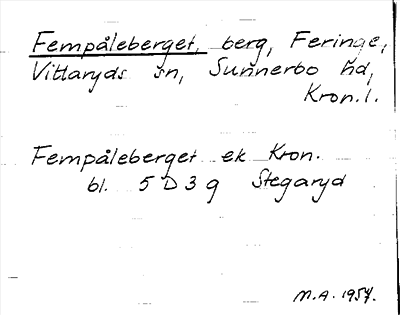 Fempåleberget, berg, Feringe,
Vittaryds sn, Sunnerbo hd,
Kron.l.
Fempåleberget ek Kron.
bl. 5 D 3 g Stegaryd
M.A. 1957.